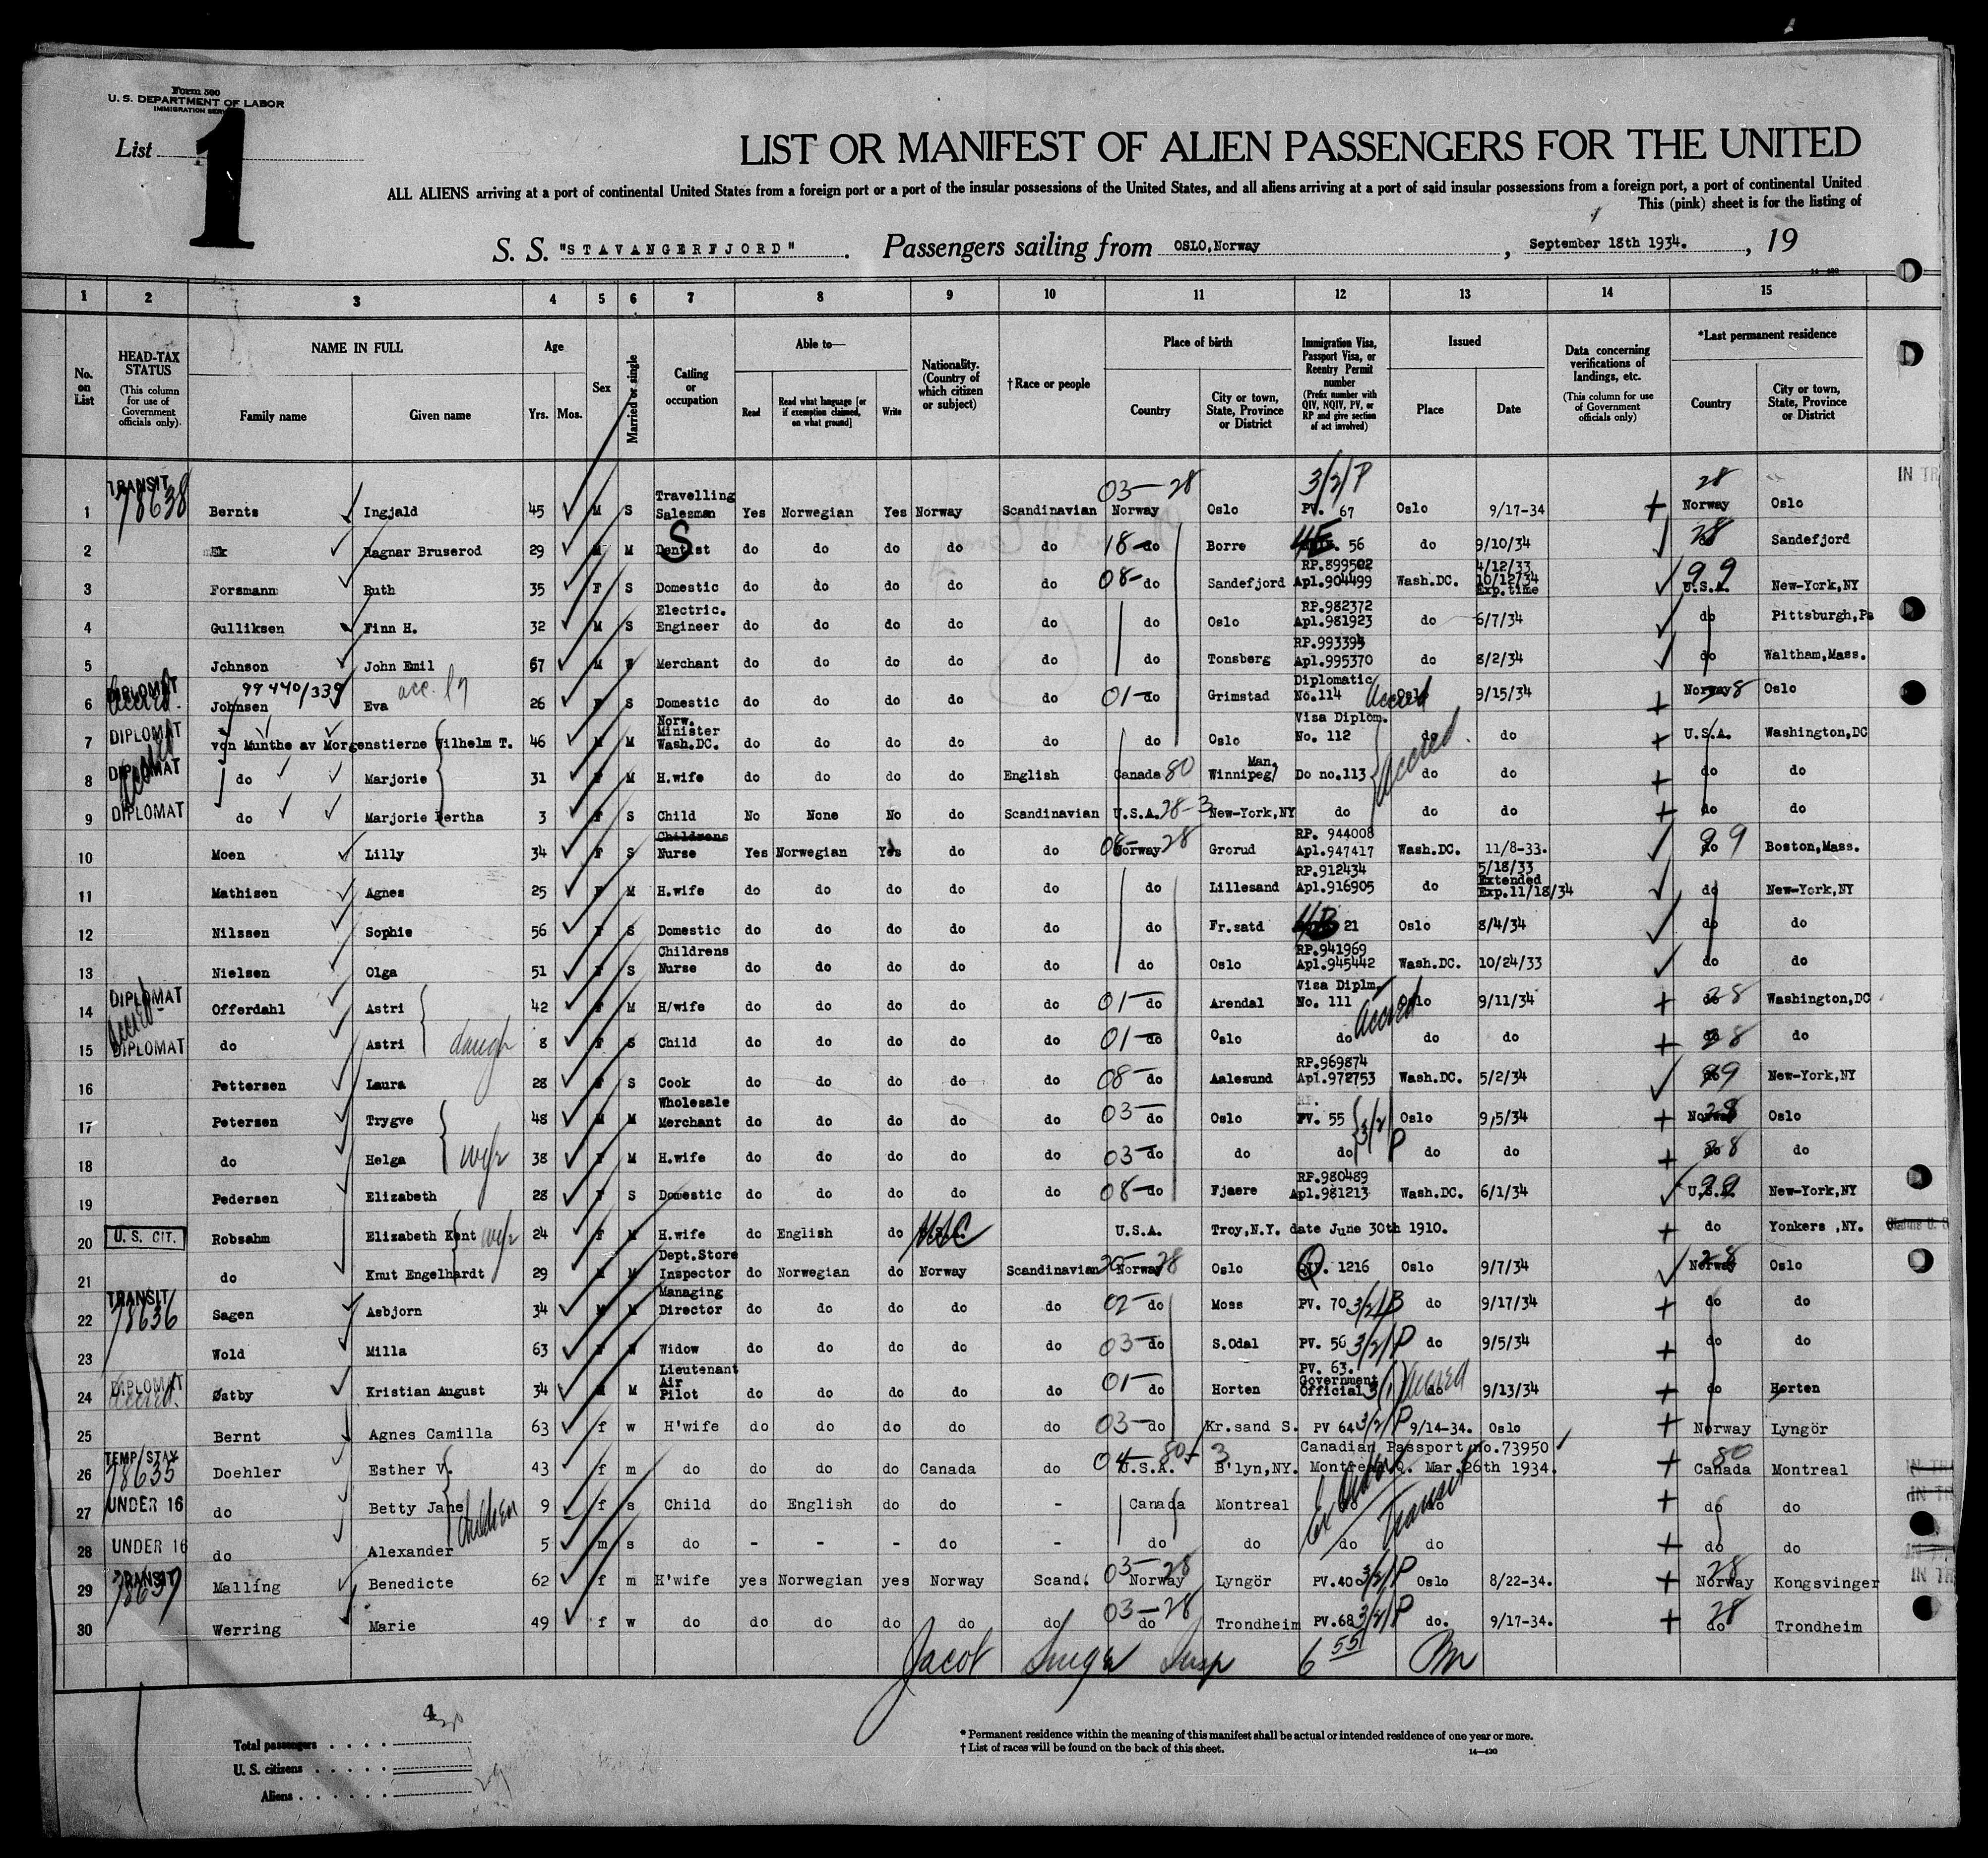 Form 500
U. S. DEPARTMENT OF LABOR
IMMIGRATION
List 1
LIST OR MANIFEST OF ALIEN PASSENGERS FOR THE UNITED
ALL ALIENS arriving at a port of continental United States from a foreign port or a port of the insular possessions of the United States, and all aliens arriving at a port of said insular possessions from a foreign port, a port of continental United
This (pink) sheet is for the listing of
S. S. "STAVANGERFJORD". Passengers sailing from OSLO, Norway, September 18th 1934., 19
14-420
1 2 3 4 5 6 7 8 9 10 11 12 13 14 15
No. on List
HEAD-TAX STATUS (This column for use of Government officials only).
NAME IN FULL Family name Given name
Age Yrs. Mos.
Sex
Married or single
Calling or occupation
Able to— Read Read what language [or if exemption claimed, on what ground] Write
Nationality. (Country of which citizen or subject)
†Race or people
Place of birth Country City or town, State, Province or District
Immigration Visa, Passport Visa, or Reentry Permit number (Prefix number with QIV, NQIV, PV, or RP and give section of act involved)
Issued Place Date
Data concerning verifications of landings, etc. (This column for use of Government officials only)
*Last permanent residence Country City or town, State, Province or District
1 TRANSIT 78638 Bernts Ingjald 45 M S Travelling Salesman Yes Norwegian Yes Norway Scandinavian 03-28 Norway Oslo 3/2/P PV. 67 Oslo 9/17-34 28 Norway Oslo IN TR
2 Ek Ragnar Bruserod 29 M M Dentist S do do do do do 18- do Borre 4E 56 do 9/10/34 28 do Sandefjord
3 Forsmann Ruth 35 F S Domestic do do do do do 08- do Sandefjord RP.899502 Apl.904499 Wash.DC. 4/12/33 10/12/34 Exp.time 99 U.S.A. New-York,NY
4 Gulliksen Finn H. 32 M S Electric. Engineer do do do do do do Oslo RP.982372 Apl.981923 do 6/7/34 do Pittsburgh,Pa
5 Johnson John Emil 67 M S Merchant do do do do do do Tonsberg RP.993395 Apl.995370 do 8/2/34 do Waltham,Mass.
6 DIPLOMAT Accred. 99440/339 Johnsen Eva 26 F S Domestic do do do do do 01- do Grimstad Diplomatic No.114 Accred Oslo 9/15/34 Norway 28 Oslo
7 DIPLOMAT von Munthe av Morgenstierne Wilhelm T. 46 M M Norw. Minister Wash.DC. do do do do do do Oslo Visa Diplom. No. 112 do do U.S.A. Washington,DC
8 DIPLOMAT do Marjorie 31 F M H.wife do do do do English Canada 80 Winnipeg Man. Do no.113 Accred. do do do do
9 DIPLOMAT do Marjorie Bertha 3 F S Child No None No do Scandinavian U.S.A. 28-3 New-York,NY do do do do do
10 Moen Lilly 34 F S Childrens Nurse Yes Norwegian Yes do do 08- Norway 28 Grorud RP. 944008 Apl.947417 Wash.DC. 11/8-33. do 99 Boston,Mass.
11 Mathisen Agnes 25 F M H.wife do do do do do do Lillesand RP.912434 Apl.916905 do 5/18/33 Extended Exp.11/18/34 do New-York,NY
12 Nilssen Sophie 56 F S Domestic do do do do do do Fr.satd 4B 21 Oslo 8/4/34 do do
13 Nielsen Olga 51 F S Childrens Nurse do do do do do do Oslo RP.941969 Apl.945442 Wash.DC. 10/24/33 do do
14 DIPLOMAT Accred Offerdahl Astri 42 F M H/wife do do do do do 01- do Arendal Visa Diplm. No. 111 Accred Oslo 9/11/34 do 28 Washington,DC
15 DIPLOMAT do Astri daugh 8 F S Child do do do do do 01- do Oslo do do do do 28 do
16 Pettersen Laura 28 F S Cook do do do do do 08- do Aalesund RP.969874 Apl.972753 Wash.DC. 5/2/34 do 99 New-York,NY
17 Petersen Trygve 48 M M Wholesale Merchant do do do do do 03- do Oslo PV. 55 3/2/P Oslo 9,5/34 Norway 28 Oslo
18 do Helga wife 38 F M H.wife do do do do do 03- do do do do do do 28 do
19 Pedersen Elizabeth 28 F S Domestic do do do do do 08- do Fjaere RP.980489 Apl.981213 Wash.DC. 6/1/34 U.S.A. 99 New-York,NY
20 U. S. CIT. Robsahm Elizabeth Kent wife 24 F M H.wife do English do USC U.S.A. Troy,N.Y. date June 30th 1910. do Yonkers ,NY.
21 do Knut Engelhardt 29 M M Dept.Store Inspector do Norwegian do Norway Scandinavian Norway 28 Oslo Q 1216 Oslo 9/7/34 28 Norway Oslo
22 TRANSIT 78636 Sagen Asbjorn 34 M M Managing Director do do do do do 02- do Moss PV. 70 3/2/B do 9/17/34 do do
23 Wold Milla 63 F W Widow do do do do do 03- do S.Odal PV. 56 3/2/P do 9/5/34 do do
24 DIPLOMAT Accred. Østby Kristian August 34 M M Lieutenant Air Pilot do do do do do 01- do Horten PV. 63. Government Official 3/1 Accred do 9/13/34 do Horten
25 Bernt Agnes Camilla 63 f w H'wife do do do do do 03- do Kr.sand S. PV 64 3/2/P 9/14-34. Oslo Norway Lyngör
26 TEMP/STAY 78635 Doehler Esther V. 43 f m do do do do Canada do 04 U.S.A. 80+ 3 B'lyn,NY. Canadian Passport no.73950 Montreal Q. Mar.26th 1934. 80 Canada Montreal
27 UNDER 16 do Betty Jane children 9 f s Child do English do do - Canada Montreal do do do do
28 UNDER 16 do Alexander 5 m s do - - - do - do do do do do do
Transit
29 TRANSIT 78637 Malling Benedicte 62 f m H'wife yes Norwegian yes Norway Scand. 03- 28 Norway Lyngör PV.40 3/2/P Oslo 8/22-34. 28 Norway Kongsvinger IN TR
30 Werring Marie 49 f w do do do do do do 03-28 do Trondheim PV.68 3/2/P do. 9/17-34. 28 do Trondheim
Jacob Insp 6 55
Total passengers
U. S. citizens
Aliens 29
* Permanent residence within the meaning of this manifest shall be actual or intended residence of one year or more.
† List of races will be found on the back of this sheet.
14-420